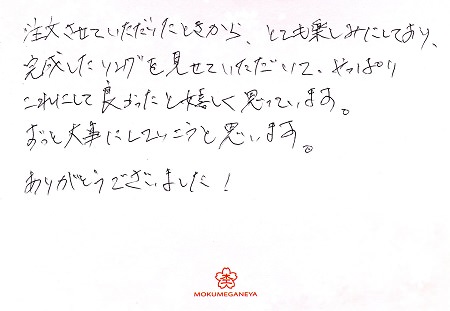 注文させていただいたときから、とても楽しみにしており、
完成したリングを見せていただいて、やっぱり
これにして良かったと嬉しく思っています。
ずっと大事にしていこうと思います。
ありがとうございました！
MOKUMEGANEYA